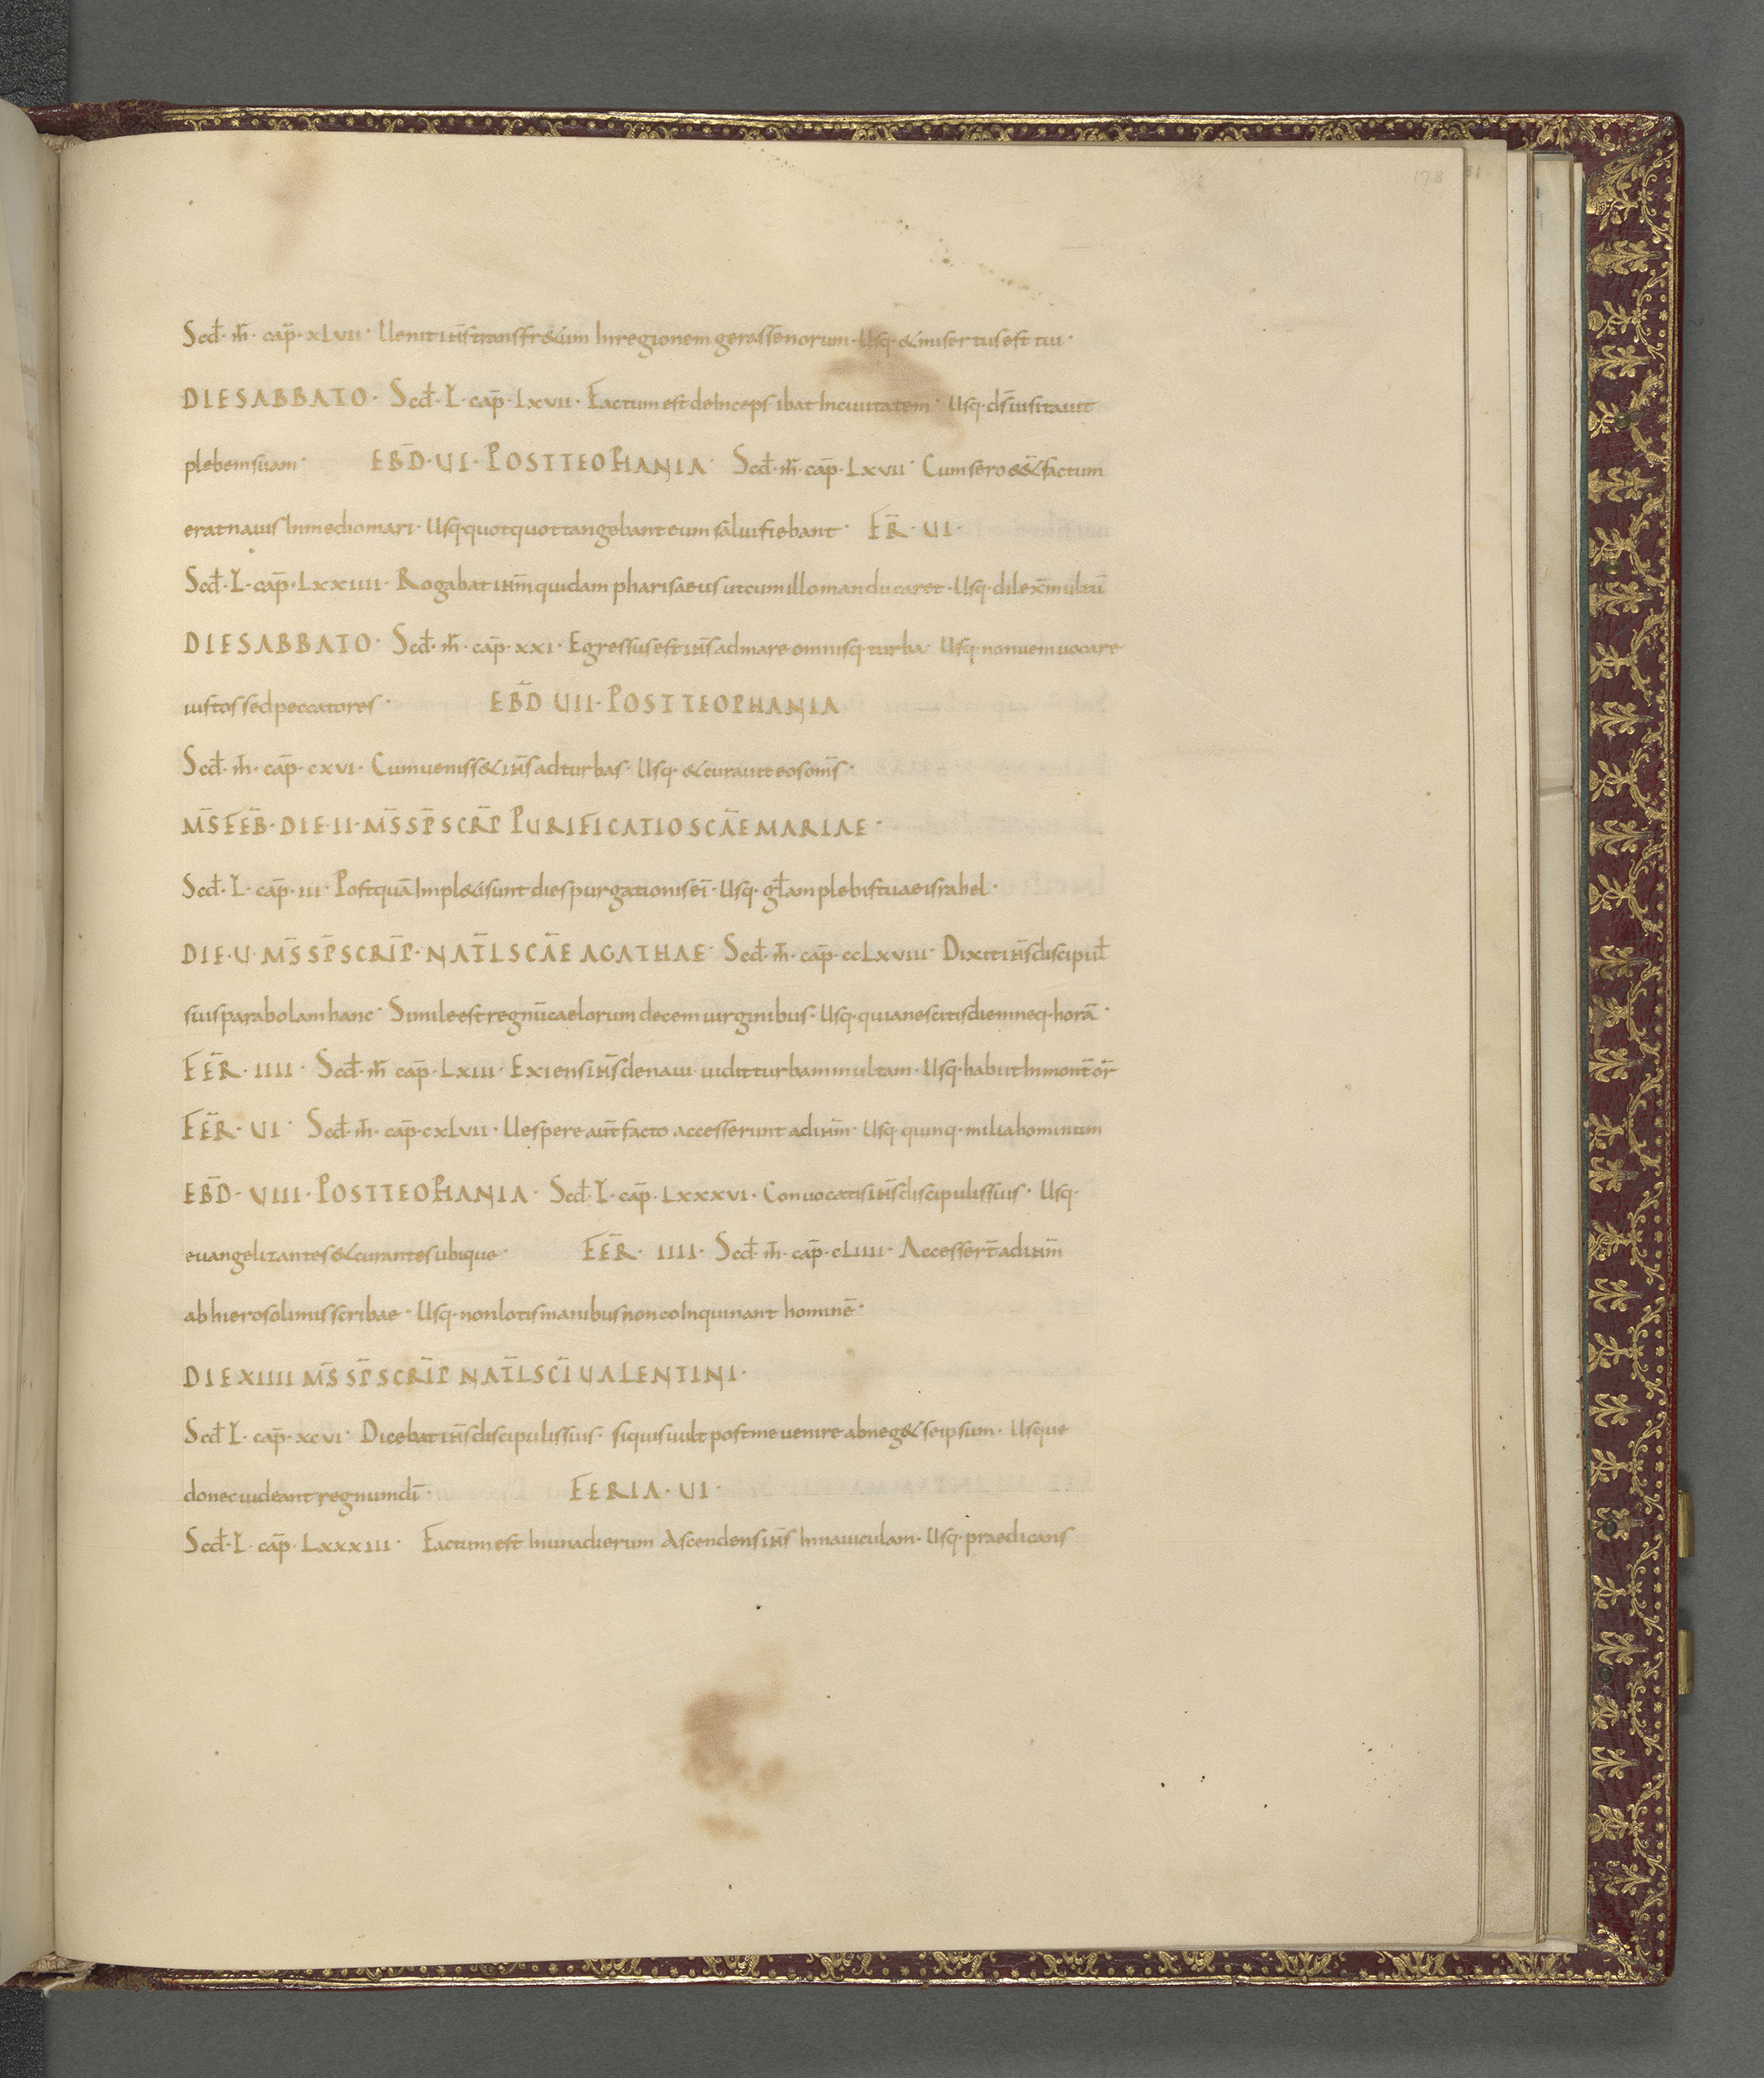 178
Scd̄· m̄r· cap̄· xLvii· Uenit ih̄s trans fr&um In regionem gerassenorum· Usq· & misertus est tui·
DIE SABBATO· Scd̄· L̄· cap̄· Lxvii· Factum est deInceps ibat In ciuitatem· Usq· d̄s uisitauit
plebem suam· EBD̄· UI· POST TEOPHANIA· Scd̄· m̄r· cap̄· Lxvii· Cum sero ess& factum
erat nauis In medio mari· Usq· quotquot tangebant eum salui fiebant· FR̄· UI·
Scd̄· L̄· cap̄· Lxxiiii· Rogabat ih̄m quidam pharisaeus ut cum illo manducaret· Usq· dilex̄ multū
DIE SABBATO· Scd̄· m̄r· cap̄· xxi· Egressus est ih̄s ad mare omnisq turba· Usq· non ueni uocare
iustos sed peccatores· EBD̄ UII· POST TEOPHANIA
Scd̄· m̄· cap̄· cxvi· Cumueniss& ih̄s ad turbas· Usq· & curauit eos om̄s·
M̄S FEB̄· DIE· II· M̄S S̄P SCR̄P PURIFICATIO SC̄AE MARIAE·
Scd̄· L̄· cap̄· iii· Postquā Impl&i sunt dies purgationis eī· Usq· gl̄am plebis tuae israhel·
DIE· U· M̄S S̄P SCRĪP· NAT̄L SC̄AE AGATHAE· Scd̄· m̄· cap̄· ccLxviii· Dixit ih̄s discipul̄
suis parabolam hanc· Simile est regnū caelorum decem uirginibus· Usq· quia nescitis diem neq· horā·
FER̄· IIII· Scd̄· m̄r cap̄· Lxiii· Exiens ih̄s de naui uidit turbam multam· Usq· habiit In mont̄ or̄
FER̄· UI· Scd̄· m̄· cap̄· cxLvii· Uespere aut̄ facto accesserunt ad ih̄m· Usq· quinq· milia hominum
EBD̄· VIII· POST TEOPHANIA· Scd̄· L̄· cap̄· Lxxxvi· Conuocatis ih̄s discipulis suis· Usq·
euangelizantes & curantes ubique· FER̄· IIII· Scd̄· m̄· cap̄· cLiiii· Accesser̄t ad ih̄m
ab hierosolimis scribae· Usq· non lotis manibus non coInquinant hominē·
DIE XIIII M̄S S̄P SCRĪP NAT̄L SC̄I UALENTINI·
Scd̄ L̄· cap̄· xcvi· Dicebat ih̄s discipulis suis· si quis uult post me uenire abneg& se ipsum· Usque
donec uideant regnum dī· FERIA· UI·
Scd̄· L̄· cap̄· Lxxxiii· Factum est In una dierum Ascendens ih̄s In nauiculam· Usq· praedicans